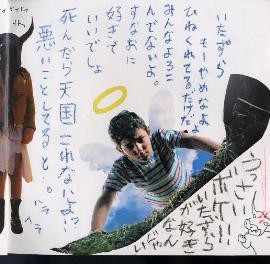 いたずら
もーやめなよ
ひねくれてるだけだよ
みんなよろこ
んでないよ。
すなおに
好きで
いいでしょ
死んだら天国これないよ!?
悪いことしてると…。
ハラ
ハラ
うっさい!
ボケー!!
いたずら
が好き
なん
じゃ